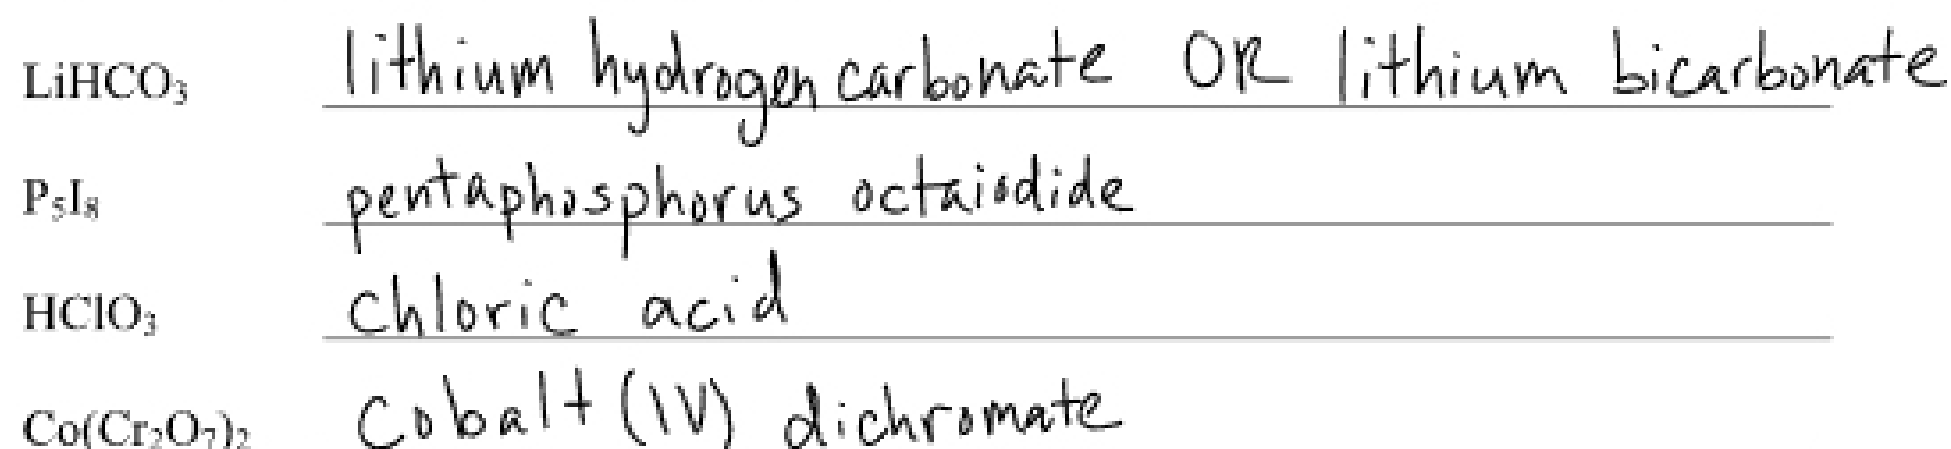 LiHCO₃ lithium hydrogen carbonate OR lithium bicarbonate
P₅I₈ pentaphosphorus octaiodide
HClO₃ chloric acid
Co(Cr₂O₇)₂ Cobalt (IV) dichromate